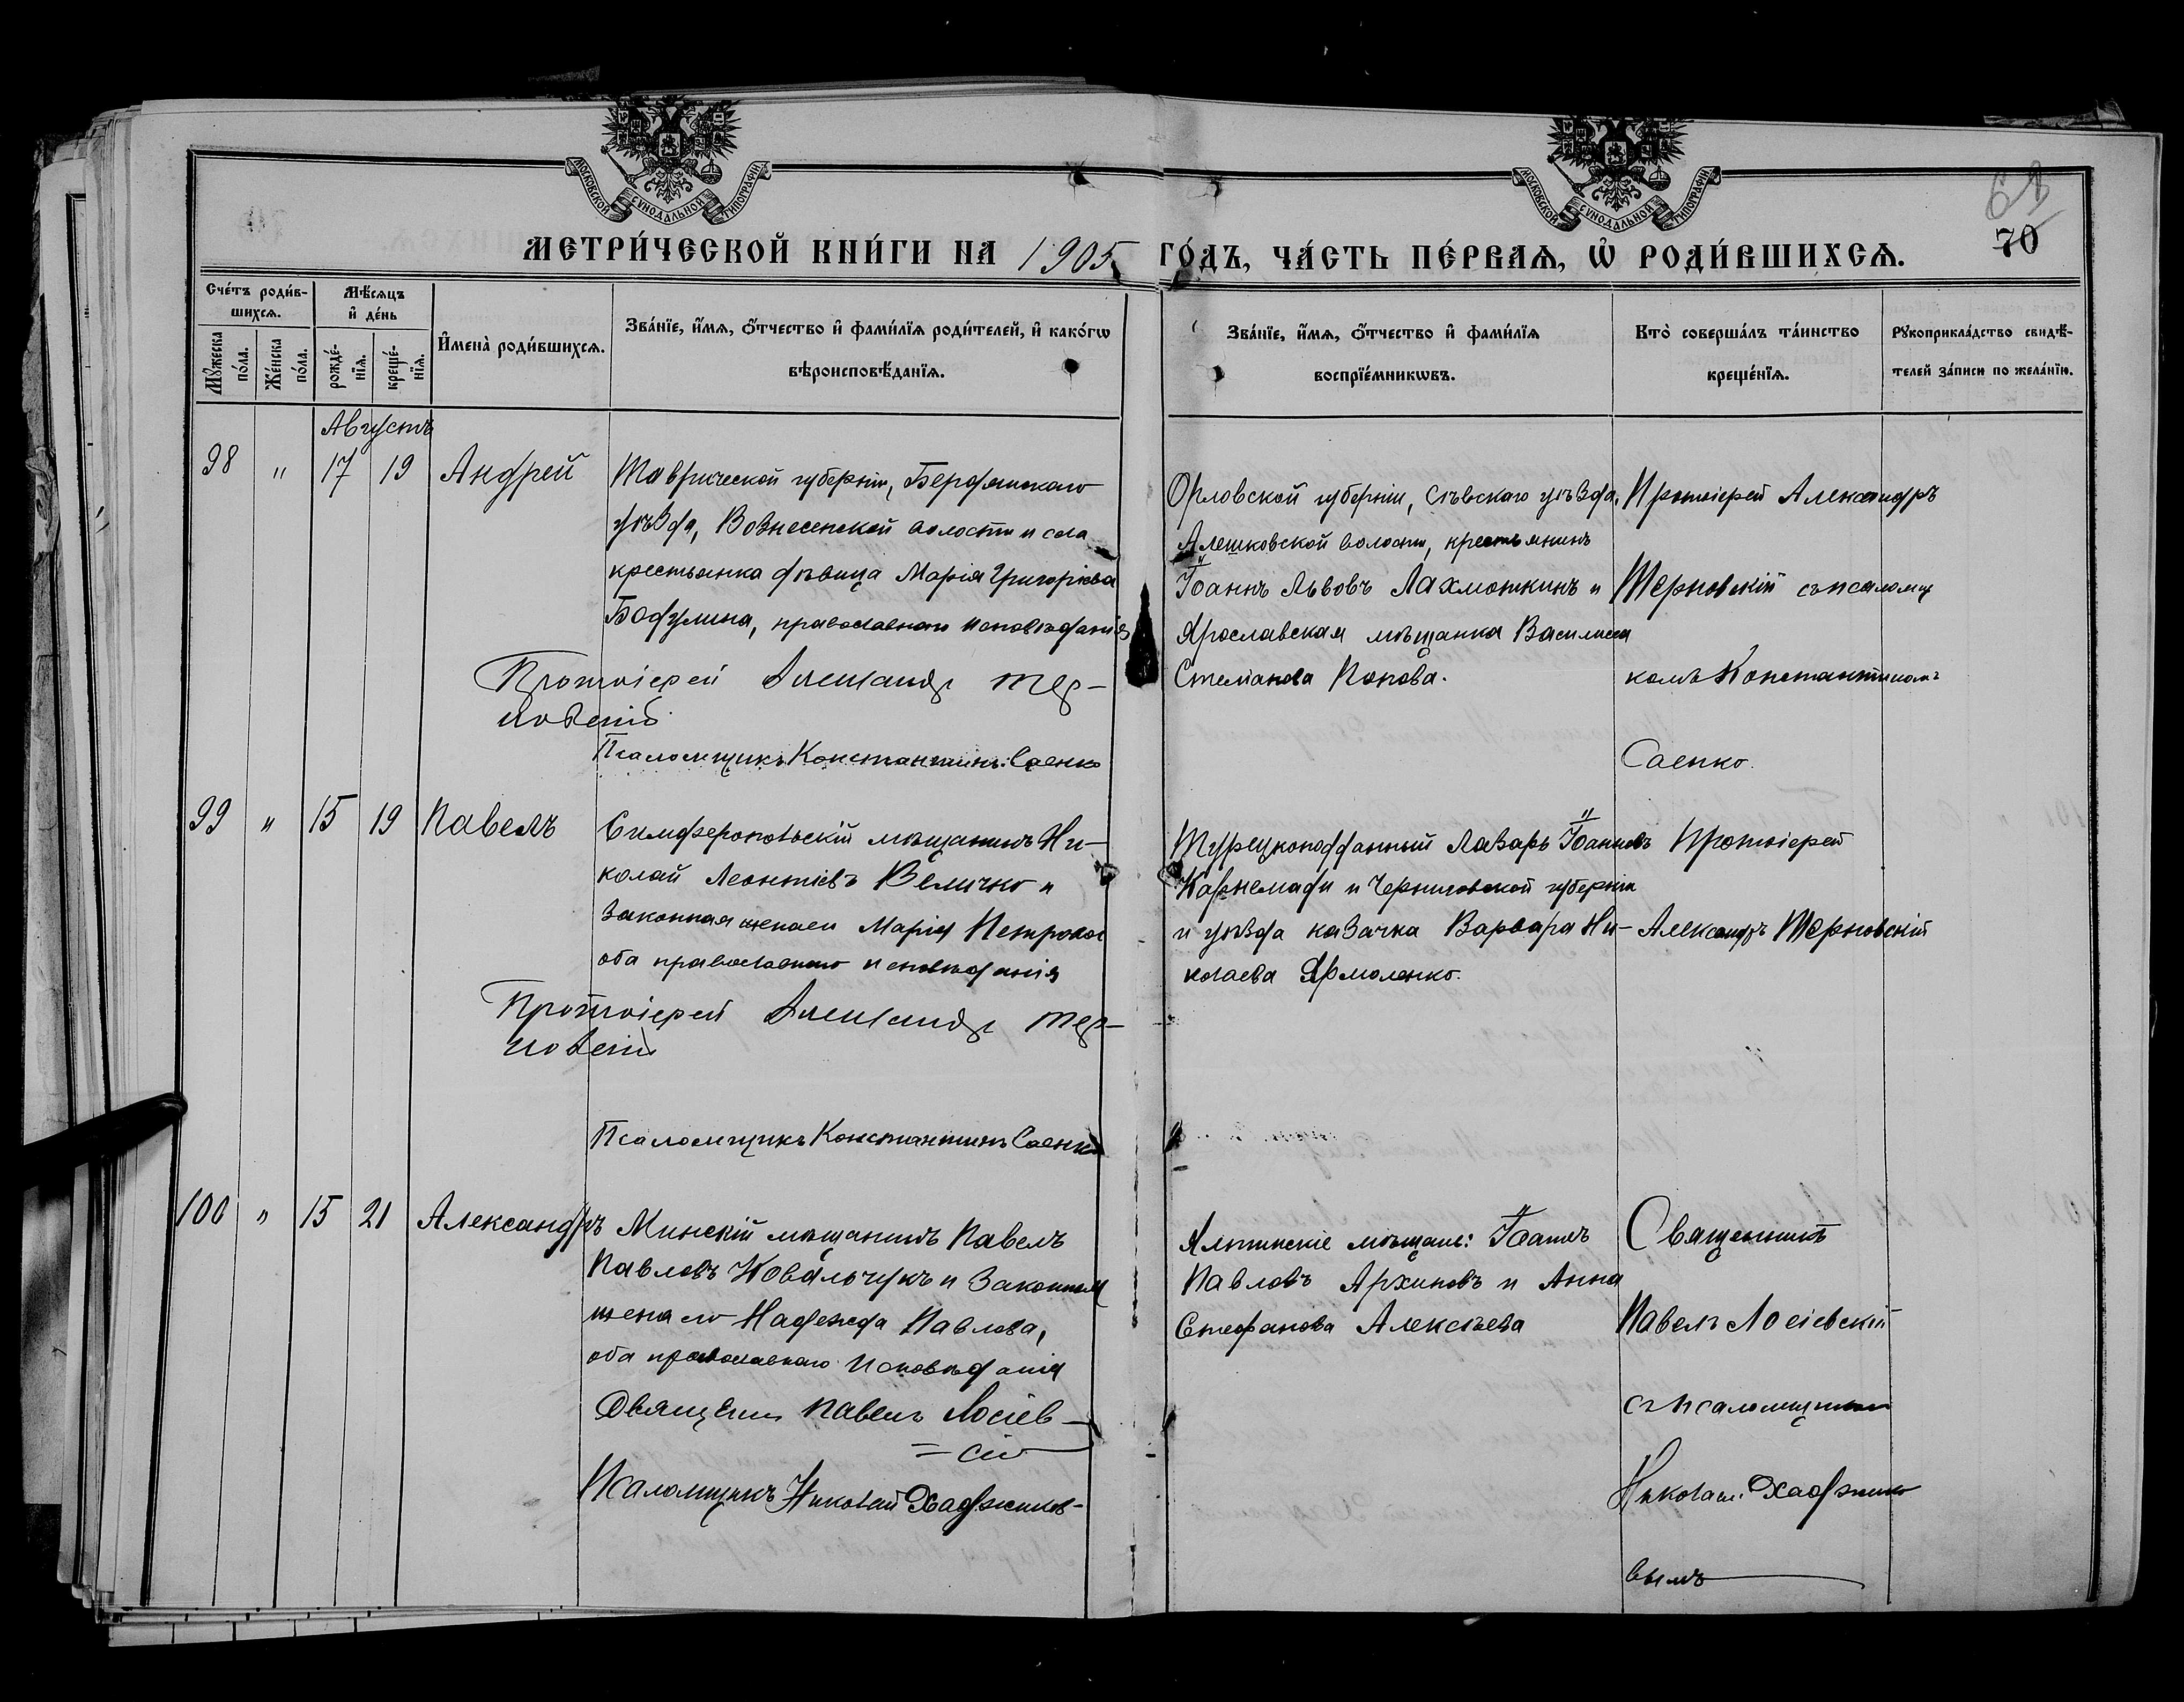 МОСКОВСКОЙ СУНОДАЛЬНОЙ ТИПОГРАФІИ
МОСКОВСКОЙ СУНОДАЛЬНОЙ ТИПОГРАФІИ
МЕТРИ́ЧЕСКОЙ КНИ́ГИ НА 1905 ГО́ДЪ, ЧА́СТЬ ПЕ́РВАѦ, Ѡ҆ РОДИ́ВШИХСѦ.
70
Сче́тъ роди́в-
шихсѧ.
Мѣ́сѧцъ
и҆ де́нь
И҆мена̀ роди́вшихсѧ.
Зва́нїе, и҆́мѧ, ѻ҆́тчество и҆ фами́лїѧ роди́телей, и҆ како́гѡ
вѣроисповѣ́данїѧ.
Мꙋ́жеска
по́ла.
Же́нска
по́ла.
рожде́-
нїѧ.
креще́-
нїѧ.
Зва́нїе, и҆́мѧ, ѻ҆́тчество и҆ фами́лїѧ
воспрїе́мникѡвъ.
Кто̀ соверша́лъ та́инство
креще́нїѧ.
Рꙋкоприкла́дство свидѣ́-
телей за́писи по жела́нїю.
Августъ
98 " 17 19 Андрей
Таврической губерніи, Бердянскаго
уѣзда, Вознесенской волости и села
крестьянка дѣвица Марія Григоріева
Бодулина, православнаго исповѣданія
Протоіерей Александр Тер-
новскій
Псаломщикъ Константинъ Саенко
Орловской губерніи, Сѣвскаго уѣзда,
Алешковской волости, крестьянинъ
Іоаннъ Львовъ Лахмоткинъ и
Ярославская мѣщанка Василиса
Стефанова Попова.
Протоіерей Александръ
Терновскій съ псаломщи
комъ Константиномъ
Саенко.
99 " 15 19 Павелъ
Симферопольскій мѣщанинъ Ни-
колай Леонтіевъ Величко и
законная жена его Марія Петрова
оба православнаго исповѣданія
Протоіерей Александр Тер-
новскій
Псаломщикъ Константинъ Саенко
Турецкоподданный Лазарь Іоанновъ
и Черниговской губерніи
и уѣзда казачка Варвара Ни-
колаева Ярмоленко.
Протоіерей
Александръ Терновскій
100 " 15 21 Александръ
Минскій мѣщанинъ Павелъ
Павловъ Ковальчукъ и законная
жена его Надежда Павлова,
оба православнаго исповѣданія
Священ. Павелъ Лосіев-
=скій
Псаломщикъ Николай Хаджиковъ
Ялтинскіе мѣщане: Іоаннъ
Павловъ Архиповъ и Анна
Стефанова Алексѣева
Священникъ
Павелъ Лосіевскій
съ псаломщикомъ
Николаемъ Хаджико
вымъ